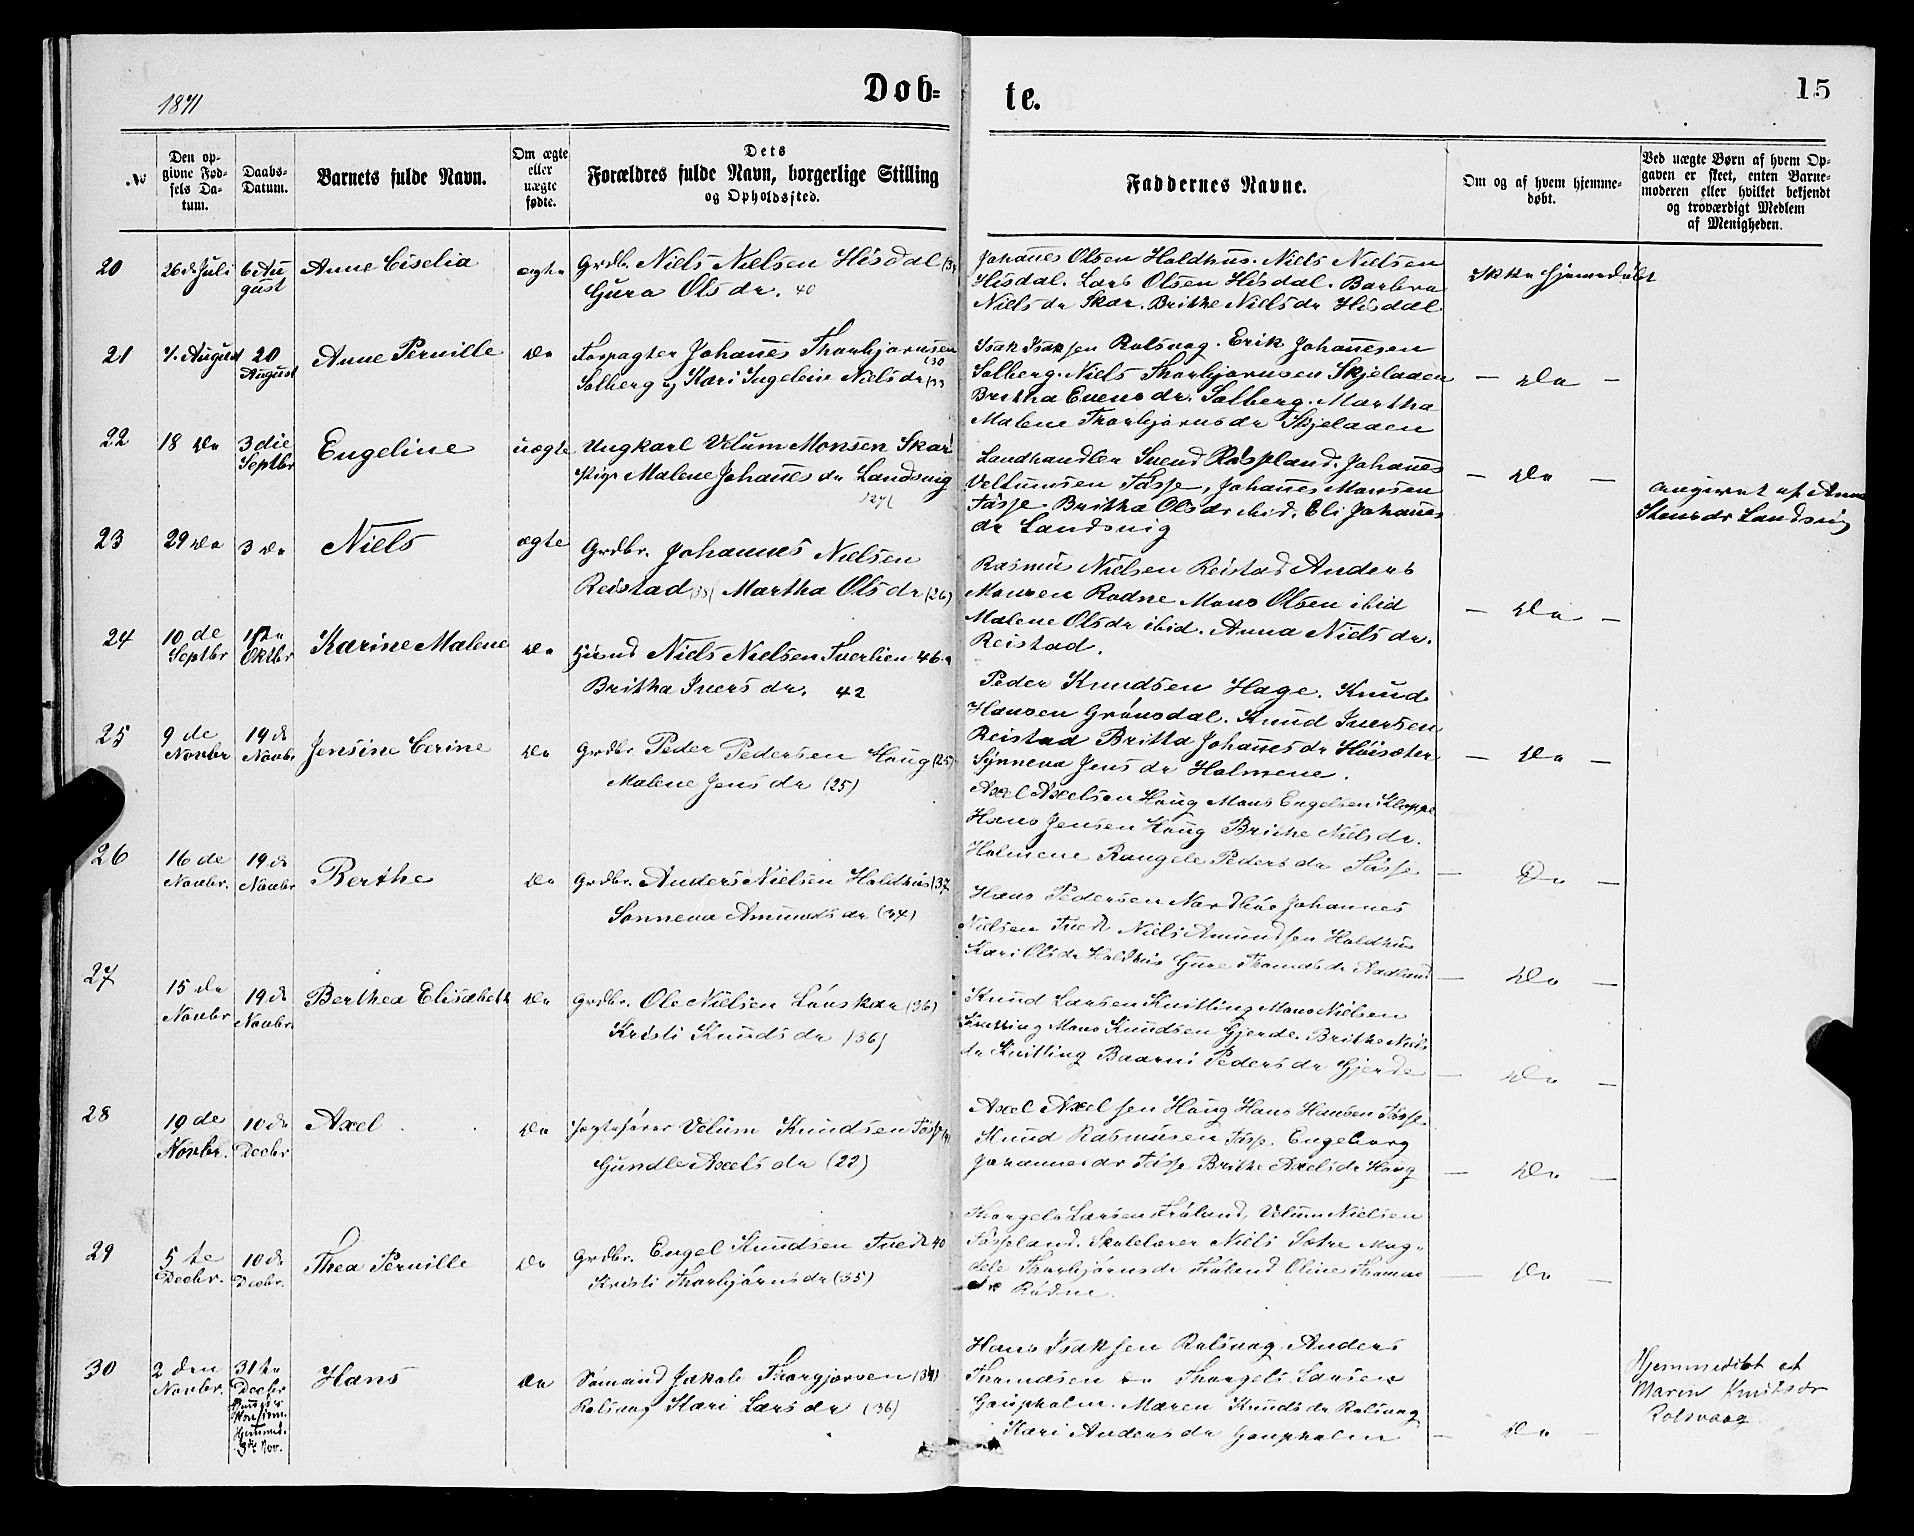 Døb=
te.
15
1871
№
Den op-
givne Fød-
sels Da-
tum.
Daabs-
Datum.
Barnets fulde Navn.
Om ægte
eller
uægte
fødte.
Dets
Forældres fulde Navn, borgerlige Stilling
og Opholdssted.
Faddernes Navne.
Om og af hvem hjemme-
døbt.
Ved uægte Børn af hvem Op-
gaven er skeet, enten Barne-
moderen eller hvilket bekjendt
og troværdigt Medlem
af Menigheden.
20
26de Juli
6 Au
gust
Anne Ciselia
ægte
Grdbr. Niels Nielsen Hisdal
Gura Olsdr. 40
Johanes Olsen Holdhus. Niels Nielsen
Hisdal. Lars Olsen Hisdal. Barbra
Nielsdr Skar. Brithe Nielsdr Hisdal
Ikke hjemedøbt
21
7. August
20
August
Anne Pernille
Do
Forpagter Johanes Thorbjørnsen
Solberg og Kari Ingeleiv Nielsdr
Isak Isaksen Rolsvaag. Erik Johanesen
Solberg. Niels Thorbjørnsen Skjelaaen
Britha Evensdr. Solberg. Martha
Malene Thorbjørnsdr Skjelaaen
— Do —
22
18 Do
3die
Septbr
Engeline
uægte
Ungkarl Velum Monsen Skar
Pige Malene Johanesdr Landsvig
Landhandler Svend Røspland. Johanes
Veltumsen Tøsse, Johanes Monsen
Tøsse Britha Olsdr ibid. Eli Johanes
dr Landsvig
— Do —
angivet af Anne
Stensdr Landsvig
23
29 Do
3 Do
Niels
ægte
Grdbr. Johannes Nielsen
Reistad Martha Olsdr (26)
Rasmus Nielsen Reistad Anders
Monsen Rødne Mons Olsen ibid
Malene Olsdr ibid. Anna Nielsdr.
Reistad.
— Do —
24
10 de
Septbr
Oktbr
Karine Malene
Do
Niels Nielsen Tverlien 46
Britha Iversdr. 42
Peder Knudsen Hage. Knud
Hansen Grønsdal. Knud Iversen
Reistad Britta Johanesdr Høisæter
Synneva Jensdr Holmene.
— Do —
25
9 de
Novbr
19 de
Novbr
Jensine Cerine
Do
Grdbr Peder Pedersen Haug (25)
Malene Jensdr (25)
Axel Axelsen Haug Mons Engelsen Kleppe
Hans Jensen Haug Brithe Nielsdr.
Holmene Rangele Pedersdr Tøsse
— Do —
26
16 de
Novbr.
19 de
Novbr
Berthe
Do
Grdbr. Anders Nielsen Holdhus (37
Sønneva Amundsdr (34)
Hans Pedersen Nordbøe Johannes
Nielsen Tvedt Niels Amundsen Holdhus
Kari Olsdr Holdhus Gure Thomasdr Aadland
— Do —
27
15 de
Novbr
19 de
Novbr
Berthea Elisabeth
Do
Grdbr. Ole Nielsen Lønskar (36)
Kristi Knudsdr (36)
Knud Larsen Kvitling Mons Nielsen
Kvitling Mons Knudsen Gjerde. Brithe Niels
dr Kvitling Baarni Pedersdr Gjerde
— Do —
28
19 de
Novbr.
10 de
Decbr
Axel
Do
Jægtefører Velum Knudsen Tøsse
Gundle Axelsdr (22)
Axel Axelsen Haug Hans Hansen Tøsse
Knud Rasmusen Tøsse. Engeborg
Johannesdr Tøsse Brithe Axelsdr Haug
— Do —
29
5 te
Decbr.
10 de
Decbr.
Thea Pernille
Do
Grdbr. Engel Knudsen Tvedt 40
Kristi Thorbjørnsdr (35)
Thorgels Larsen Frøland, Velum Nielsen
Tøsseland. Skolelærer Niels Sætre Mag-
dele Thorbjørnsdr Frøland Oline Thomas
dr Rødne.
— Do —
30
2 den
Novbr.
31 te
Decbr
Hans
Do
Sømand Jakob Thorgjørsen (34)
Rolsvaag Kari Larsdr (36)
Hans Isaksen Rolsvaag Anders
Thomasen Do Thorgels Larsen
Gaupholm. Maren Knudsdr Rolsvaag
Kari Andersdr Gaupholm
— Do —
Hjemmedøbt af
Maren Knudsdr
Rolsvaag